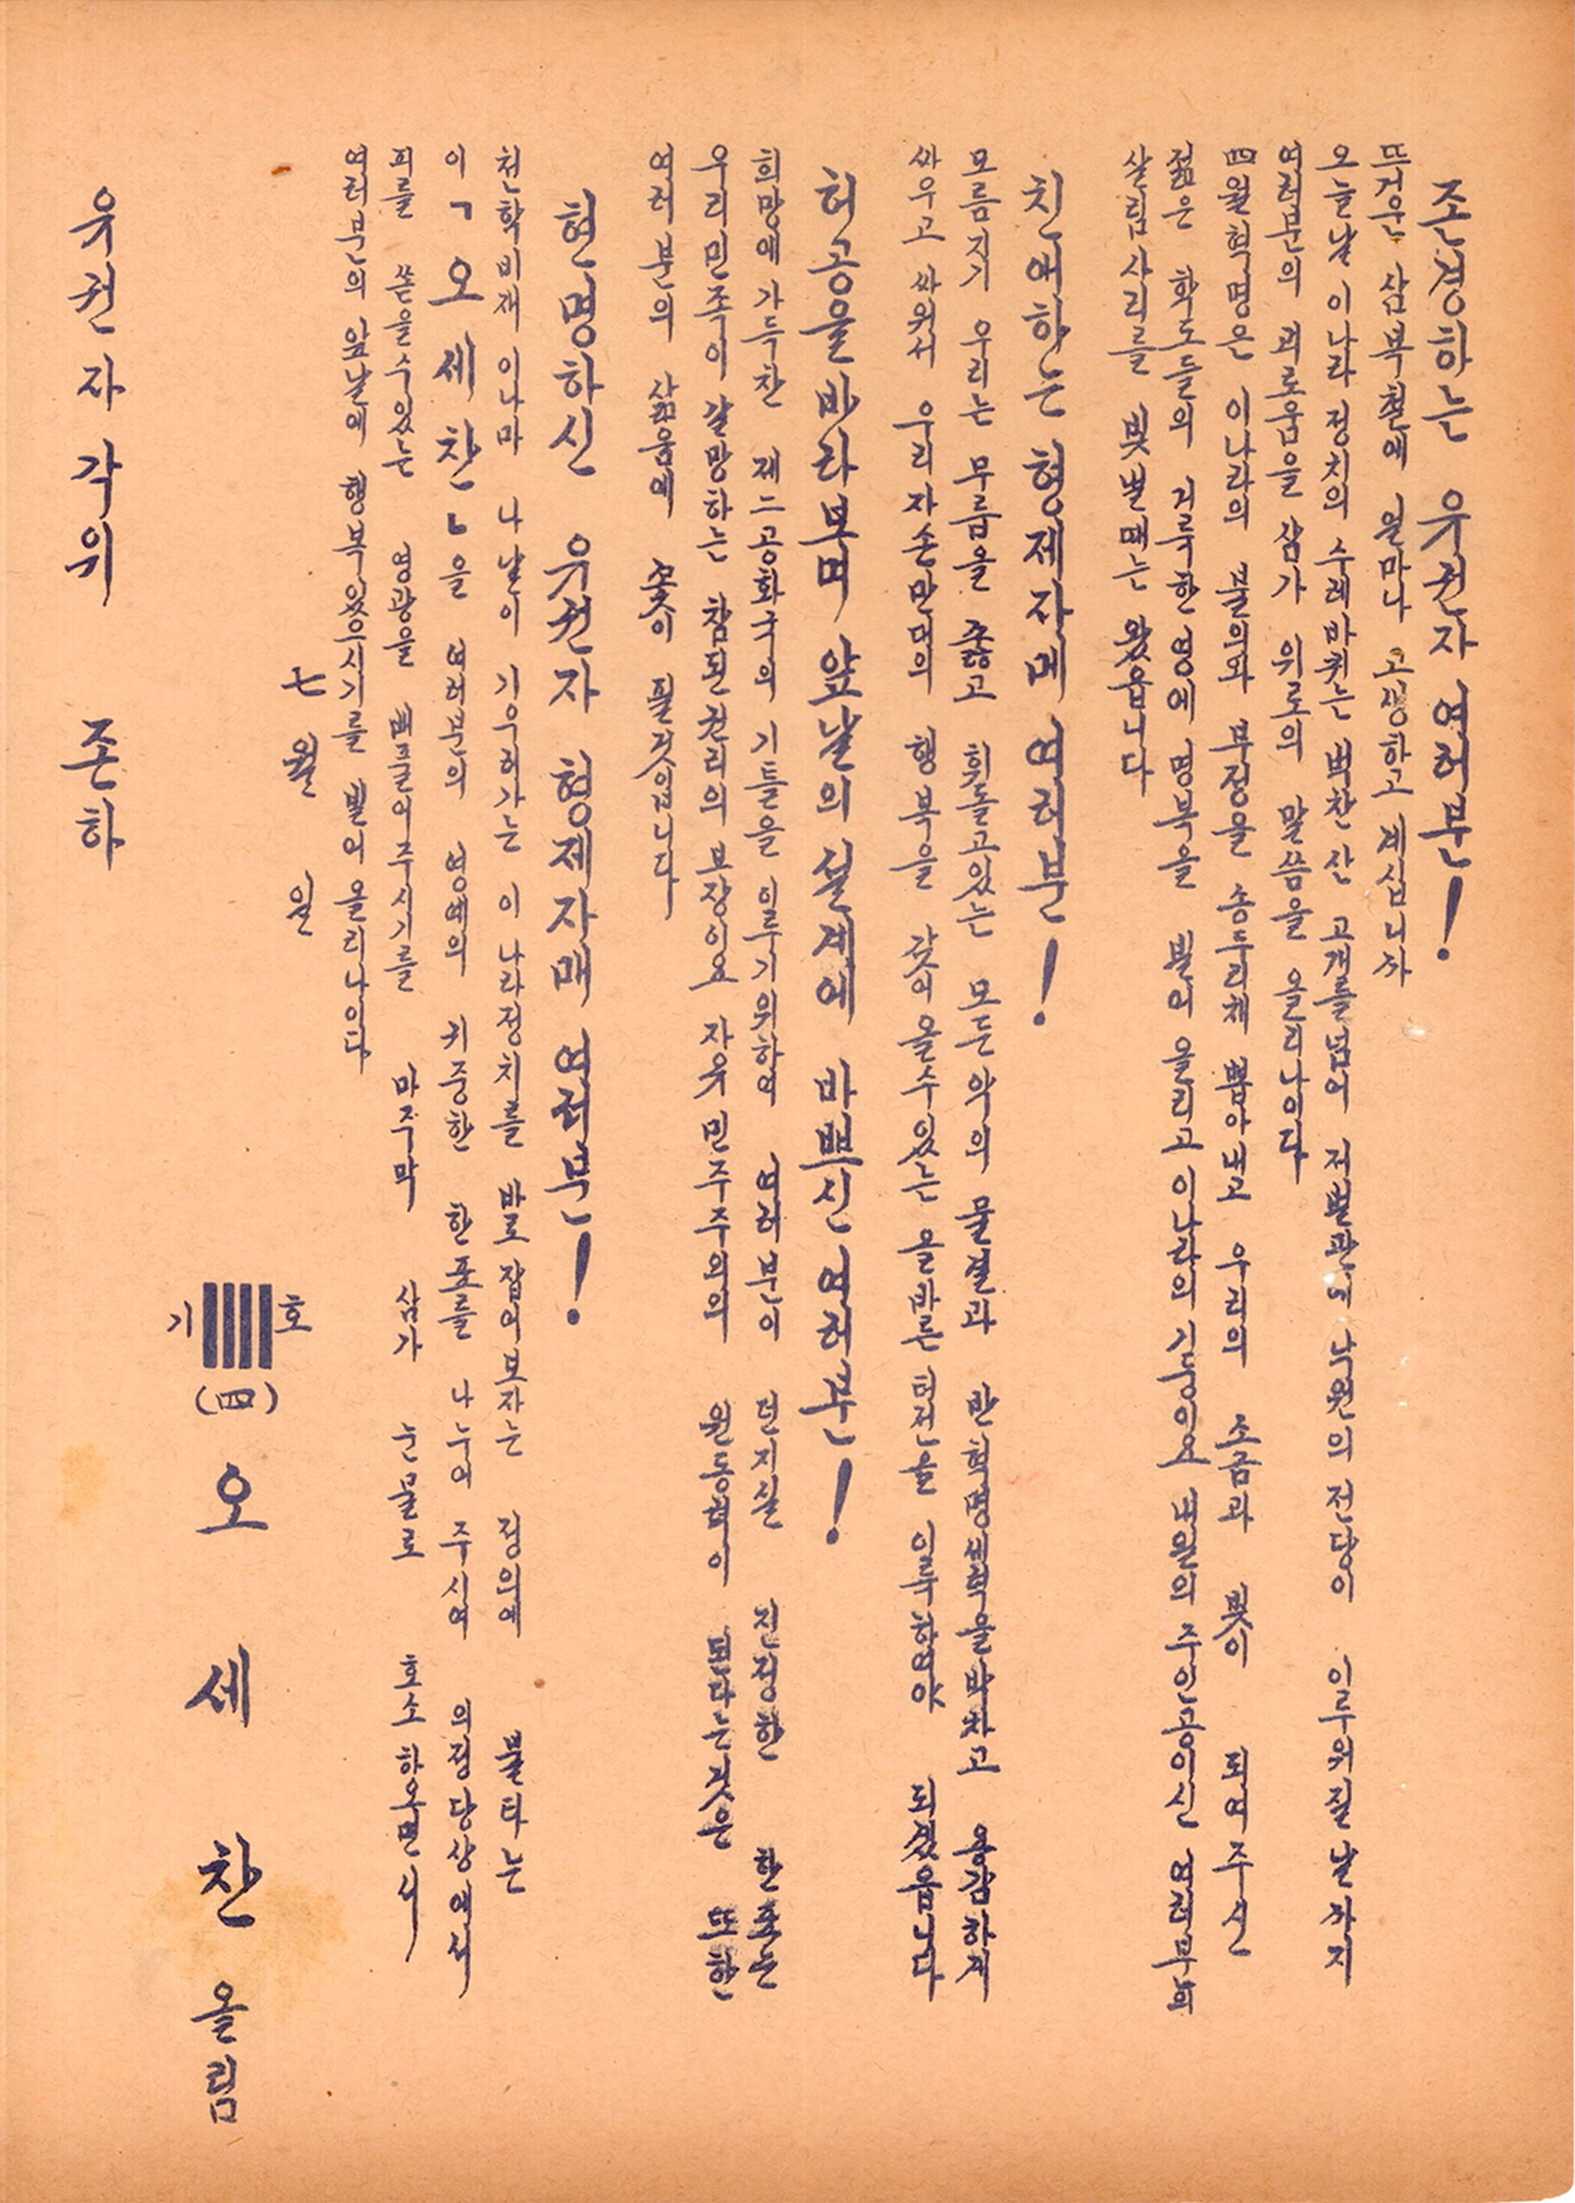 존경하는 유권자 여러분!
뜨거운 삼복철에 얼마나 고생하고 계십니까
오늘날 이나라 정치의 수레바퀴는 벅찬 산 고개를넘어 저 벌판에 낙원의 전당이 이루워질 날까지
여러분의 괴로움을 삼가 위로의 말씀을 올리나이다
四월혁명은 이나라의 불의와 부정을 송두리채 뽑아내고 우리의 소금과 빛이 되여주신
젊은 학도들의 거룩한 영에 명복을 빌어 올리고 이나라의 기둥이요 내일의 주인공이신 여러분께
살림사리를 빛낼때는 왔읍니다
친애하는 형제자매 여러분!
모름지기 우리는 무릎을 꿇고 휘돌고있는 모든악의 물결과 반혁명세력을박차고 용감하게
싸우고 싸워서 우리자손만대의 행복을 갖어올수있는 올바른 터전을 이룩하여야 되겠읍니다
허공을바라보며 앞날의 설계에 바쁘신 여러분!
희망에 가득찬 제二공화국의 기틀을 이루기위하여 여러분의 던지실 진정한 한표는
우리민족이 갈망하는 참된권리의 보장이요 자유민주주의의 원동력이 된다는것은 또한
여러분의 삶움에 꽃이 필것입니다
현명하신 유권자 형제자매 여러분!
천학비재 이나마 나날이 기우러가는 이 나라정치를 바로잡어보자는 정의에 불타는
이「오세찬」을 여러분의 영예의 귀중한 한표를 나누어 주시여 의정당상에서
피를 쏟을수있는 영광을 베풀어주시기를 마주막 삼가 눈물로 호소하오면서
여러분의 앞날에 행복있으시기를 빌어 올리나이다
七월 일
기 호
(四) 오 세 찬 올림
유권자 각위 존하